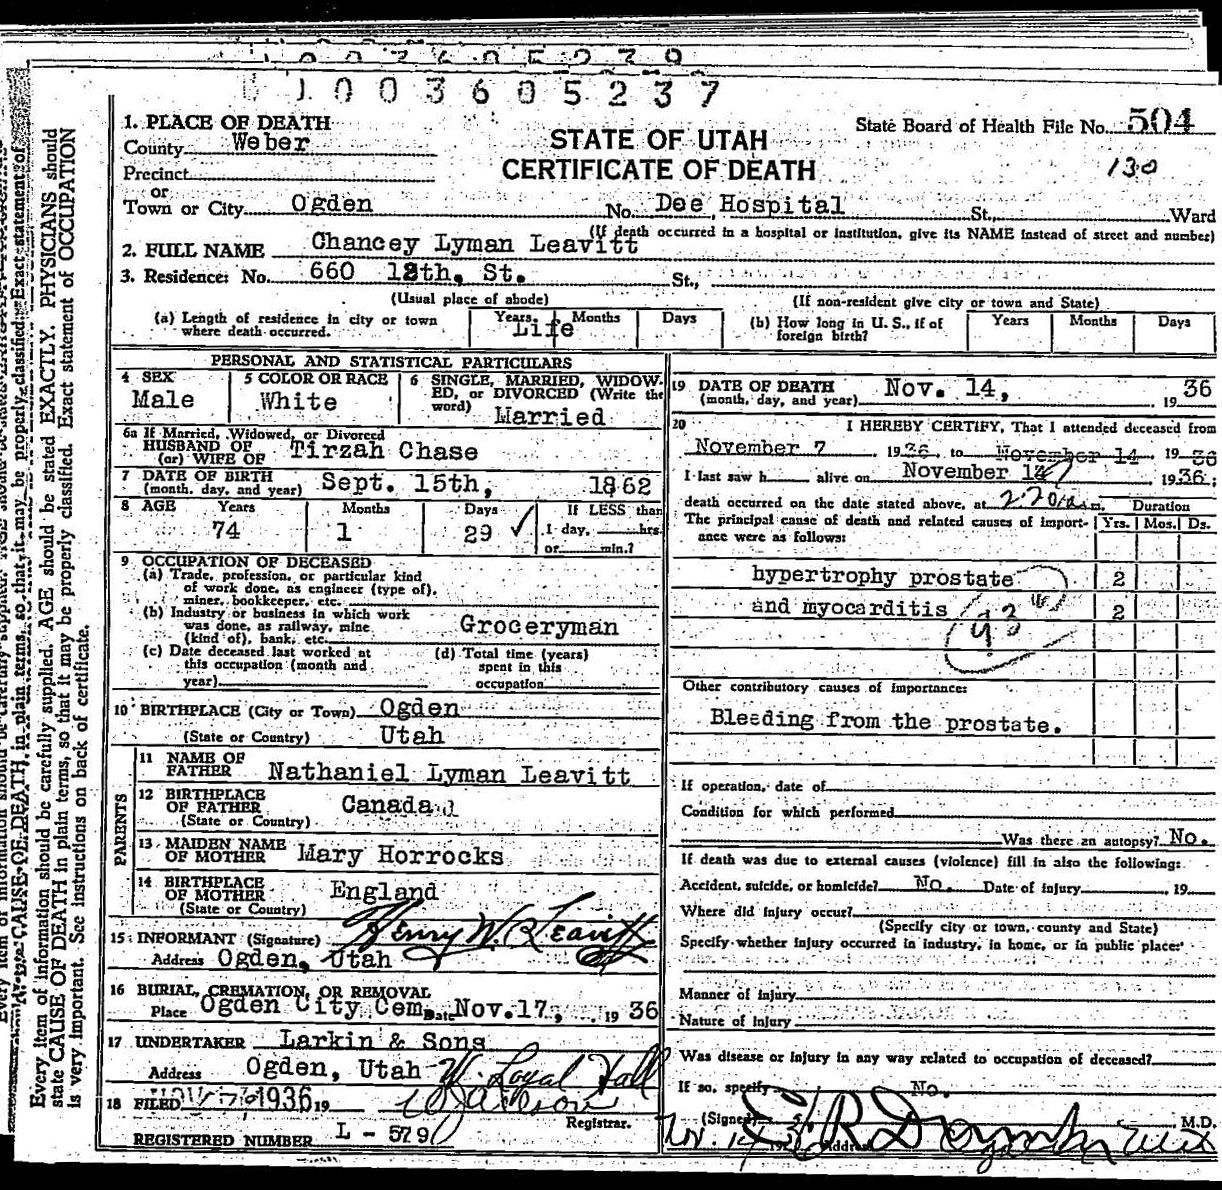 1003605237
1. PLACE OF DEATH
County Weber
Precinct
or
Town or City Ogden
STATE OF UTAH
CERTIFICATE OF DEATH
State Board of Health File No. 504
130
No. Dee Hospital St., Ward
(If death occurred in a hospital or institution, give its NAME instead of street and number)
2. FULL NAME Chancey Lyman Leavitt
3. Residence: No. 660 12th, St. St.,
(Usual place of abode)
(If non-resident give city or town and State)
(a) Length of residence in city or town
where death occurred.
Years Months Days
Life
(b) How long in U. S., if of
foreign birth?
Years Months Days
PERSONAL AND STATISTICAL PARTICULARS
4 SEX
Male
5 COLOR OR RACE
White
6 SINGLE, MARRIED, WIDOW-
ED, or DIVORCED (Write the
word) Married
6a If Married, Widowed, or Divorced
HUSBAND OF
(or) WIFE OF Tirzah Chase
7 DATE OF BIRTH
(month, day, and year) Sept. 15th, 1862
8 AGE Years Months Days If LESS than
74 1 29 ✓ 1 day, hrs.
or min.?
9 OCCUPATION OF DECEASED
(a) Trade, profession, or particular kind
of work done, as engineer (type of),
miner, bookkeeper, etc.
(b) Industry or business in which work
was done, as railway, mine
(kind of), bank, etc. Groceryman
(c) Date deceased last worked at
this occupation (month and
year)
(d) Total time (years)
spent in this
occupation
10 BIRTHPLACE (City or Town) Ogden
(State or Country) Utah
PARENTS
11 NAME OF
FATHER Nathaniel Lyman Leavitt
12 BIRTHPLACE
OF FATHER Canada
(State or Country)
13 MAIDEN NAME
OF MOTHER Mary Horrocks
14 BIRTHPLACE
OF MOTHER England
(State or Country)
15 INFORMANT (Signature) Henry W. R Leavitt
Address Ogden, Utah
16 BURIAL, CREMATION, OR REMOVAL
Place Ogden City Cem. Date Nov. 17, 1936
17 UNDERTAKER Larkin & Sons
Address Ogden, Utah W. Loyal Hall
18 FILED 1936 19
Registrar.
REGISTERED NUMBER L - 579
19 DATE OF DEATH
(month, day, and year) Nov. 14, 1936
20 I HEREBY CERTIFY, That I attended deceased from
November 7 , 1936, to November 14 1936
I last saw h alive on November 14 , 1936;
death occurred on the date stated above, at 2 20 a m.
Duration
The principal cause of death and related causes of import-
ance were as follows:
Yrs. Mos. Ds.
hypertrophy prostate 2
and myocarditis 2
93
Other contributory causes of importance:
Bleeding from the prostate.
If operation, date of
Condition for which performed
Was there an autopsy? No.
If death was due to external causes (violence) fill in also the following:
Accident, suicide, or homicide? No. Date of injury , 19
Where did injury occur?
(Specify city or town, county and State)
Specify whether injury occurred in industry, in home, or in public place:
Manner of injury
Nature of injury
Was disease or injury in any way related to occupation of deceased?
If so, specify No.
(Signed) M.D.
Every item of information should be carefully supplied. AGE should be stated EXACTLY. PHYSICIANS should
state CAUSE OF DEATH in plain terms, so that it may be properly classified. Exact statement of OCCUPATION
is very important. See instructions on back of certificate.